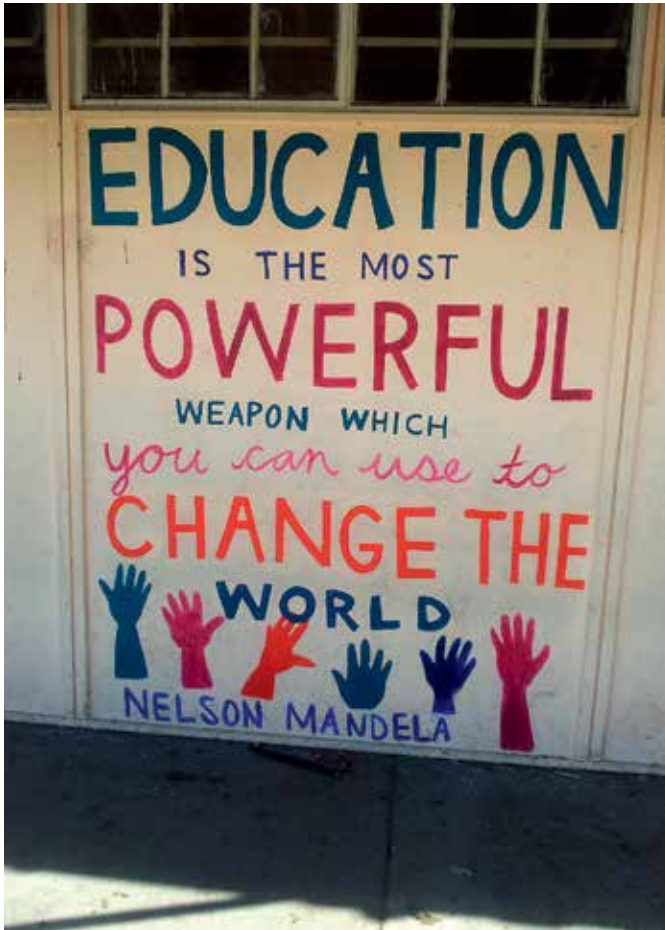 EDUCATION
IS THE MOST
POWERFUL
WEAPON WHICH
you can use to
CHANGE THE
WORLD
NELSON MANDELA